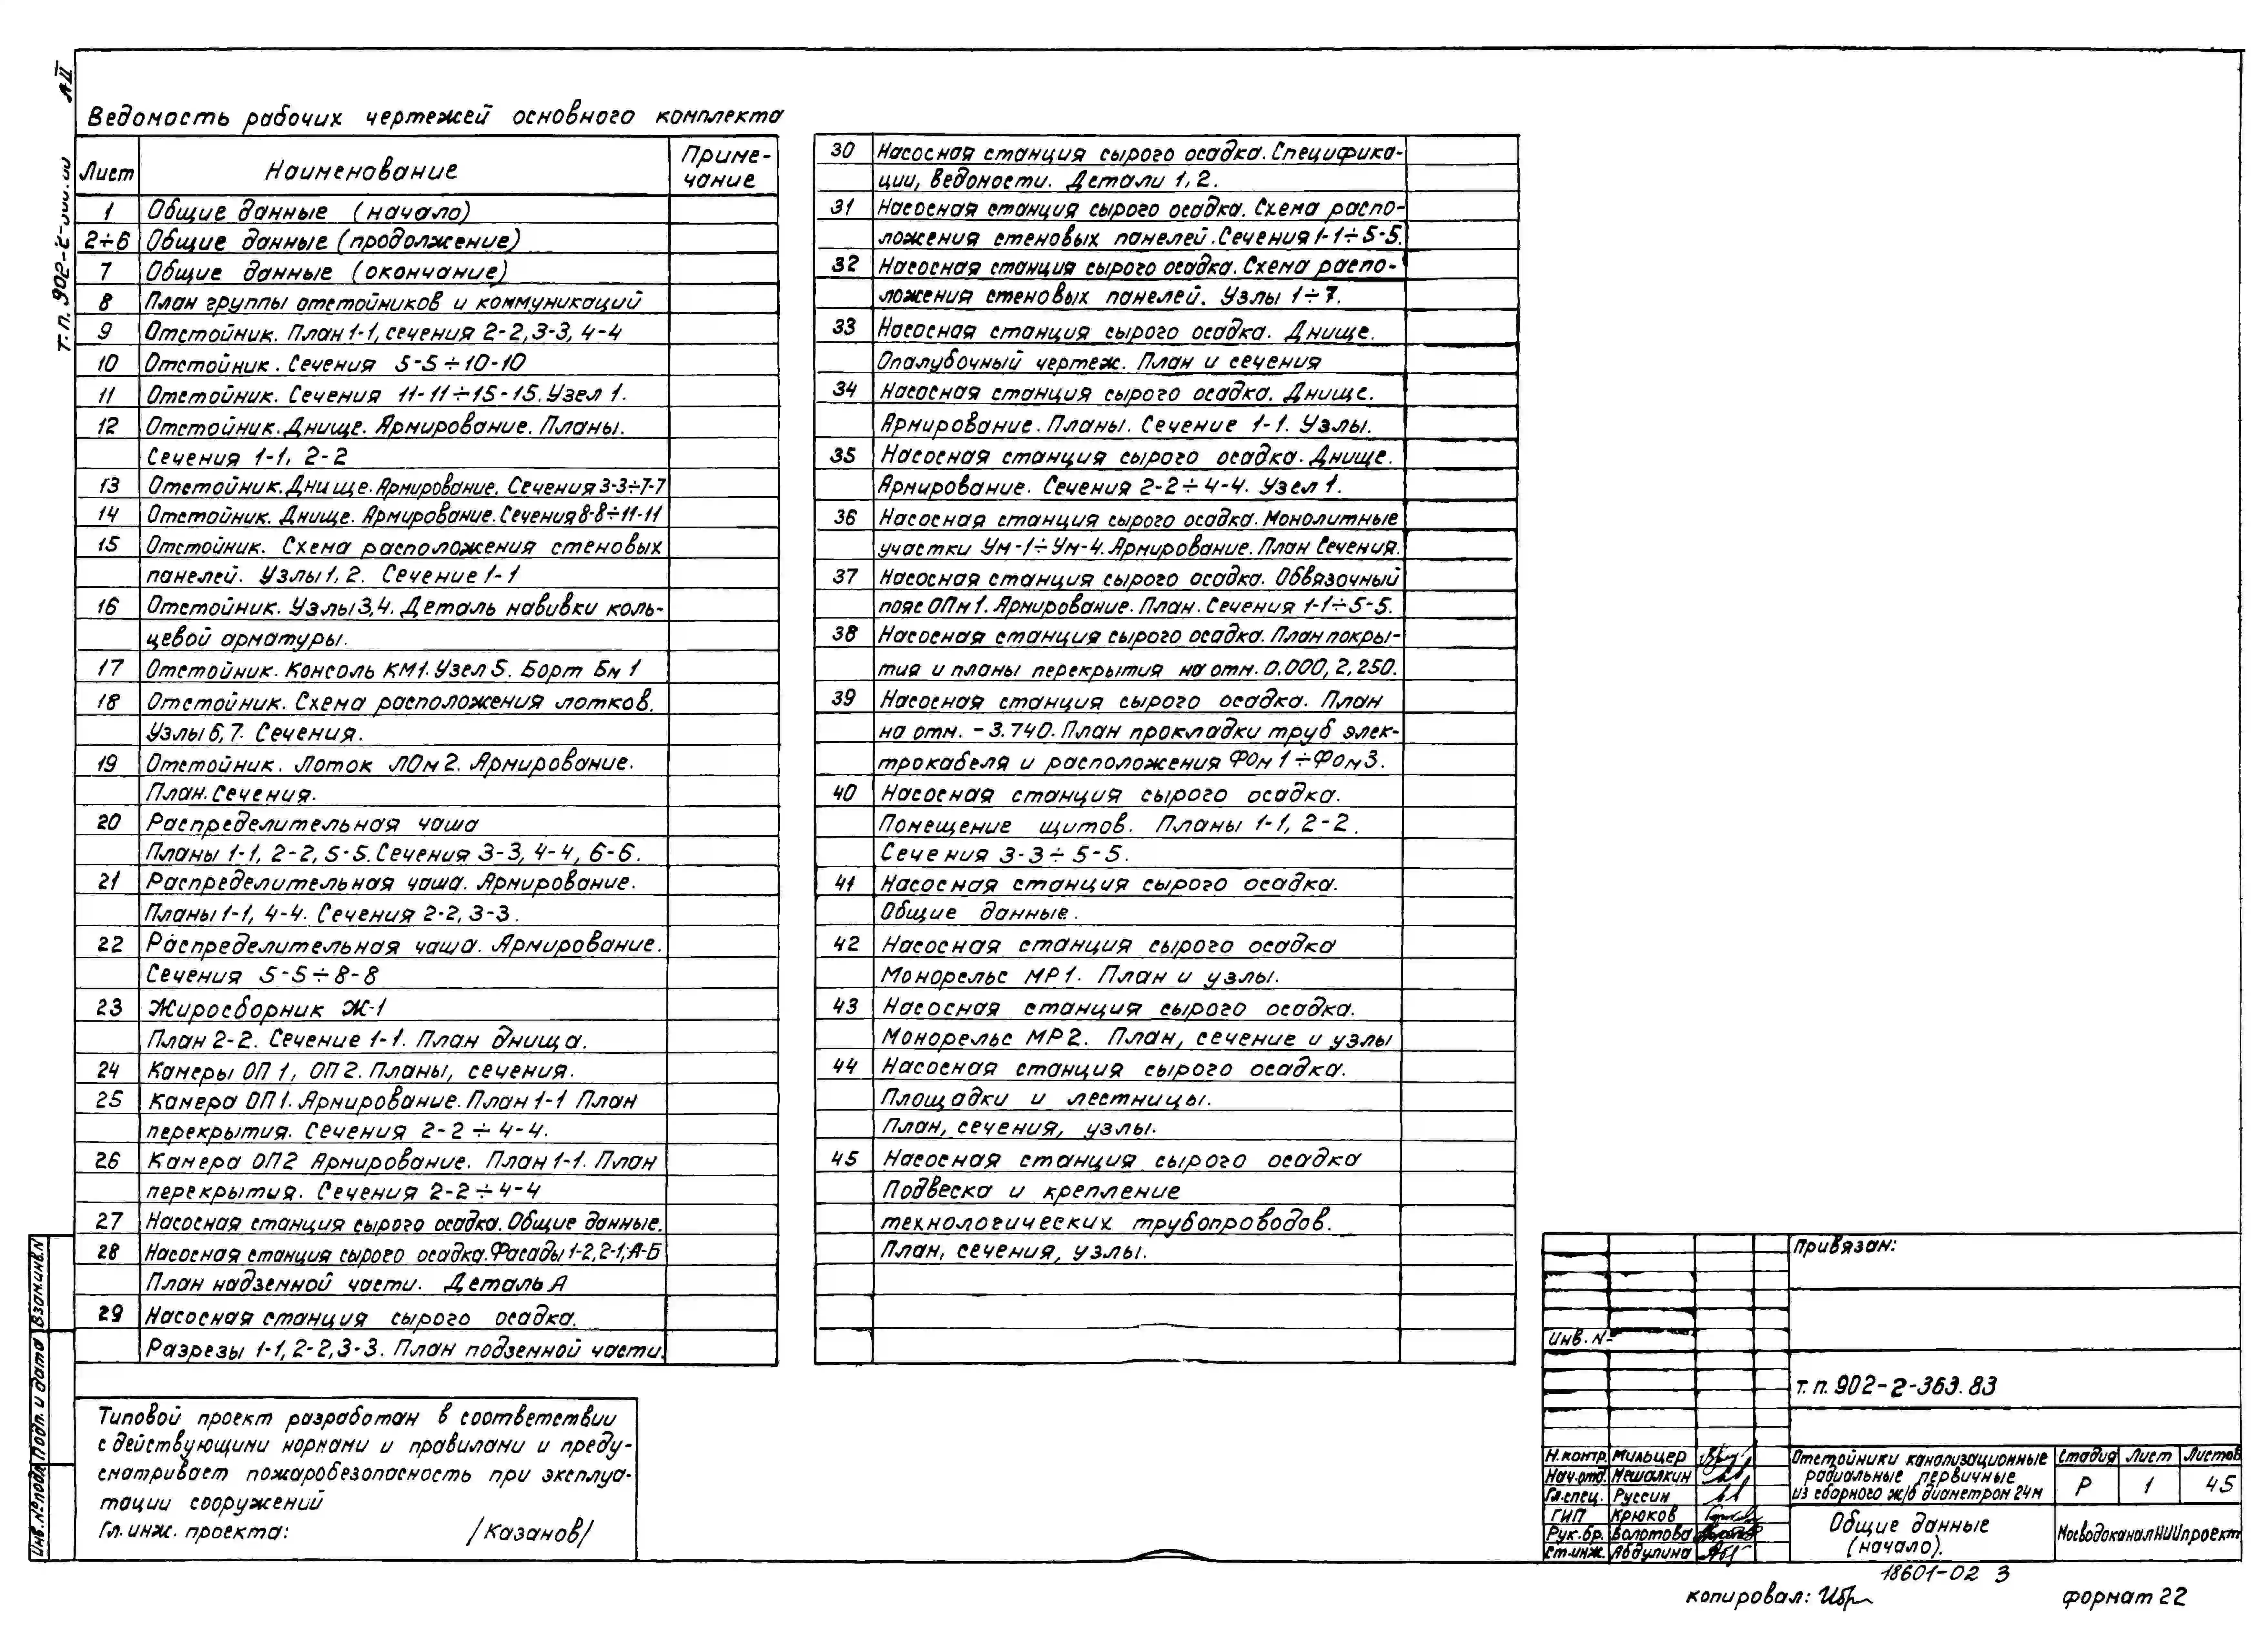 А.II
т.п. 902-2-
Ведомость рабочих чертежей основного комплекта
Лист Наименование Приме-
чание
1 Общие данные (начало)
2÷6 Общие данные (продолжение)
7 Общие данные (окончание)
8 План группы отстойников и коммуникаций
9 Отстойник. План 1-1, сечения 2-2, 3-3, 4-4
10 Отстойник. Сечения 5-5÷10-10
11 Отстойник. Сечения 11-11÷15-15. Узел 1.
12 Отстойник. Днище. Армирование. Планы.
Сечения 1-1, 2-2
13 Отстойник. Днище. Армирование. Сечения 3-3÷7-7
14 Отстойник. Днище. Армирование. Сечения 8-8÷11-11
15 Отстойник. Схема расположения стеновых
панелей. Узлы 1, 2. Сечение 1-1
16 Отстойник. Узлы 3,4. Деталь навивки коль-
цевой арматуры.
17 Отстойник. Консоль КМ1. Узел 5. Борт Бм 1
18 Отстойник. Схема расположения лотков.
Узлы 6,7. Сечения.
19 Отстойник. Лоток ЛОм 2. Армирование.
План. Сечения.
20 Распределительная чаша
Планы 1-1, 2-2, 5-5. Сечения 3-3, 4-4, 6-6.
21 Распределительная чаша. Армирование.
Планы 1-1, 4-4. Сечения 2-2, 3-3.
22 Распределительная чаша. Армирование.
Сечения 5-5÷8-8
23 Жиросборник Ж-1
План 2-2. Сечение 1-1. План днища.
24 Камеры ОП 1, ОП 2. Планы, сечения.
25 Камера ОП1. Армирование. План 1-1 План
перекрытия. Сечения 2-2÷4-4.
26 Камера ОП2 Армирование. План 1-1. План
перекрытия. Сечения 2-2÷4-4
27 Насосная станция сырого осадка. Общие данные.
28 Насосная станция сырого осадка. Фасады 1-2, 2-1; А-Б
План надземной части. Деталь А
29 Насосная станция сырого осадка.
Разрезы 1-1, 2-2, 3-3. План подземной части.
30 Насосная станция сырого осадка. Специфика-
ции, ведомости. Детали 1, 2.
31 Насосная станция сырого осадка. Схема распо-
ложения стеновых панелей. Сечения 1-1÷5-5.
32 Насосная станция сырого осадка. Схема распо-
ложения стеновых панелей. Узлы 1÷7.
33 Насосная станция сырого осадка. Днище.
Опалубочный чертеж. План и сечения
34 Насосная станция сырого осадка. Днище.
Армирование. Планы. Сечение 1-1. Узлы.
35 Насосная станция сырого осадка. Днище.
Армирование. Сечения 2-2÷4-4. Узел 1.
36 Насосная станция сырого осадка. Монолитные
участки Ум-1÷Ум-4. Армирование. План Сечения.
37 Насосная станция сырого осадка. Обвязочный
пояс ОПм 1. Армирование. План. Сечения 1-1÷5-5.
38 Насосная станция сырого осадка. План покры-
тия и планы перекрытия на отм. 0.000, 2,250.
39 Насосная станция сырого осадка. План
на отм. -3.740. План прокладки труб элек-
трокабеля и расположения ФОм 1÷ФОм 3.
40 Насосная станция сырого осадка.
Помещение щитов. Планы 1-1, 2-2.
Сечения 3-3÷5-5.
41 Насосная станция сырого осадка.
Общие данные.
42 Насосная станция сырого осадка
Монорельс МР1. План и узлы.
43 Насосная станция сырого осадка.
Монорельс МР2. План, сечение и узлы
44 Насосная станция сырого осадка.
Площадки и лестницы.
План, сечения, узлы.
45 Насосная станция сырого осадка
Подвеска и крепление
технологических трубопроводов.
План, сечения, узлы.
Типовой проект разработан в соответствии
с действующими нормами и правилами и преду-
сматривает пожаробезопасность при эксплуа-
тации сооружений
Гл. инж. проекта: /Казанов/
Инв.№подл. Подп. и дата Взам.инв.N
Привязан:
Инв. N
т.п. 902-2-363.83
Н.контр. Мильцер
Нач.отд. Мешалкин
Гл.спец. Руссин
ГИП Крюков
Рук.бр. Болотова
Ст.инж. Абдулина
Отстойники канализационные
радиальные первичные
из сборного ж/б диаметром 24м
Стадия Лист Листов
Р 1 45
Общие данные
(начало).
МосводоканалНИИпроект
18601-02 3
копировал: формат 22